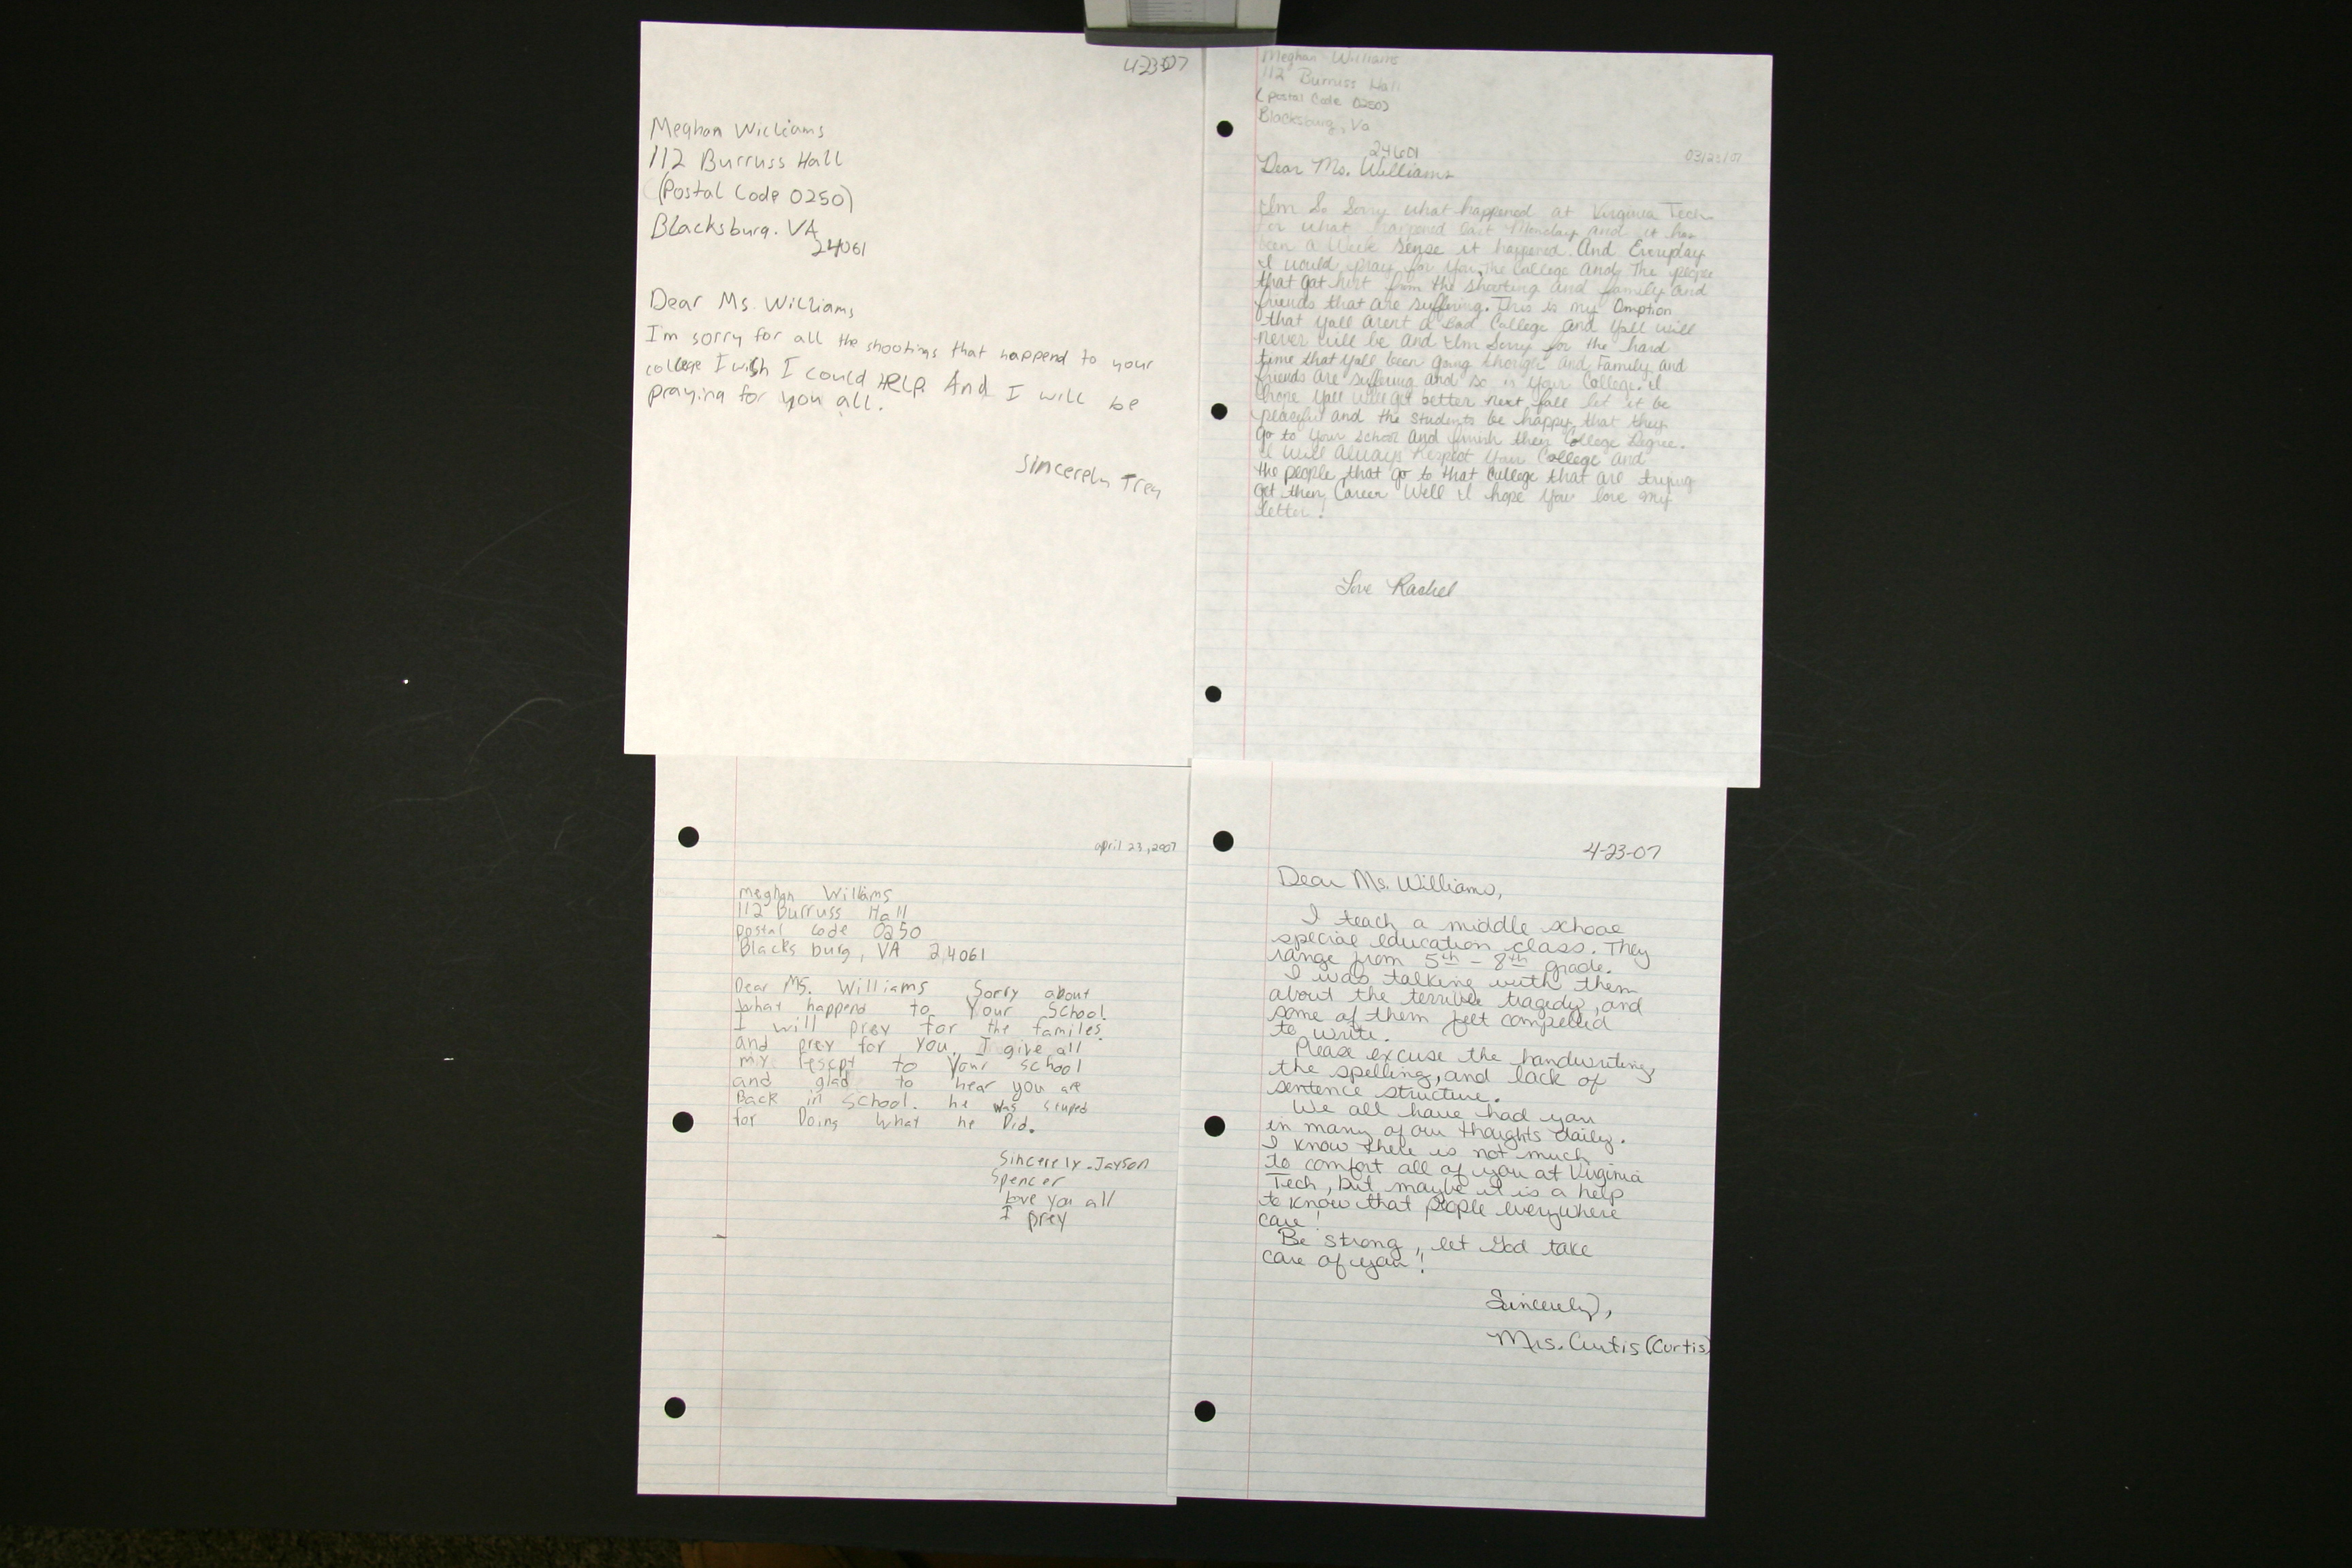 4-23-07
Meghan Williams
112 Burruss Hall
(Postal Code 0250)
Blacksburg. VA
24061
Dear Ms. Williams
I'm sorry for all the shootings that happend to your
college I wish I could HELP. And I will be
praying for you all.
Sincerely Trey
Meghan Williams
112 Burruss Hall
(postal Code 0250)
Blacksburg, Va
24601
03/23/07
Dear Ms. Williams
I'm So Sorry what happened at Virginia Tech
for what happened last Monday and it has
been a Week sense it happened. And Everyday
I would pray for you, the College and The people
that got hurt from the shooting and family and
friends that are suffering. This is my Omption
that yall arent a bad College and yall will
never will be and I'm Sorry for the hard
time that yall been going thorigh and Family and
friends are suffering and so is your College. I
hope yall will get better next fall let it be
peaceful and the students be happy that they
go to your school and finish then College Degree.
I will always Respect your College and
the people that go to that college that are trying
get then Career Well I hope you love my
letter!
Love Rachel
april 23, 2007
Meghan Williams
112 Burruss Hall
postal code 0250
Blacks burg, VA 24061
Dear MS. Williams Sorry about
what happend to Your School.
I will prey for the familes.
and prey for you. I give all
my rescpt to Your school
and glad to hear you are
Back in School. he was stuped
for Doing what he Did.
Sincerely - Jayson
Spencer
Love you all
I prey
4-23-07
Dear Ms. Williams,
I teach a middle school
special education class. They
range from 5th - 8th grade.
I was talking with them
about the terrible tragedy, and
some of them felt compelled
to write.
Please excuse the handwriting,
the spelling, and lack of
sentence structure.
We all have had you
in many of our thoughts daily.
I know there is not much
to comfort all of you at Virginia
Tech, but maybe it is a help
to know that people everywhere
care!
Be strong, let God take
care of you!
Sincerely,
Mrs. Curtis (Curtis)